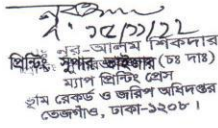 ১৫/১১/২২
নূর-আলম শিকদার
প্রিন্টিং সুপারভাইজার (চঃ দাঃ)
ম্যাপ প্রিন্টিং প্রেস
ভূমি রেকর্ড ও জরিপ অধিদপ্তর
তেজগাঁও, ঢাকা-১২০৮।